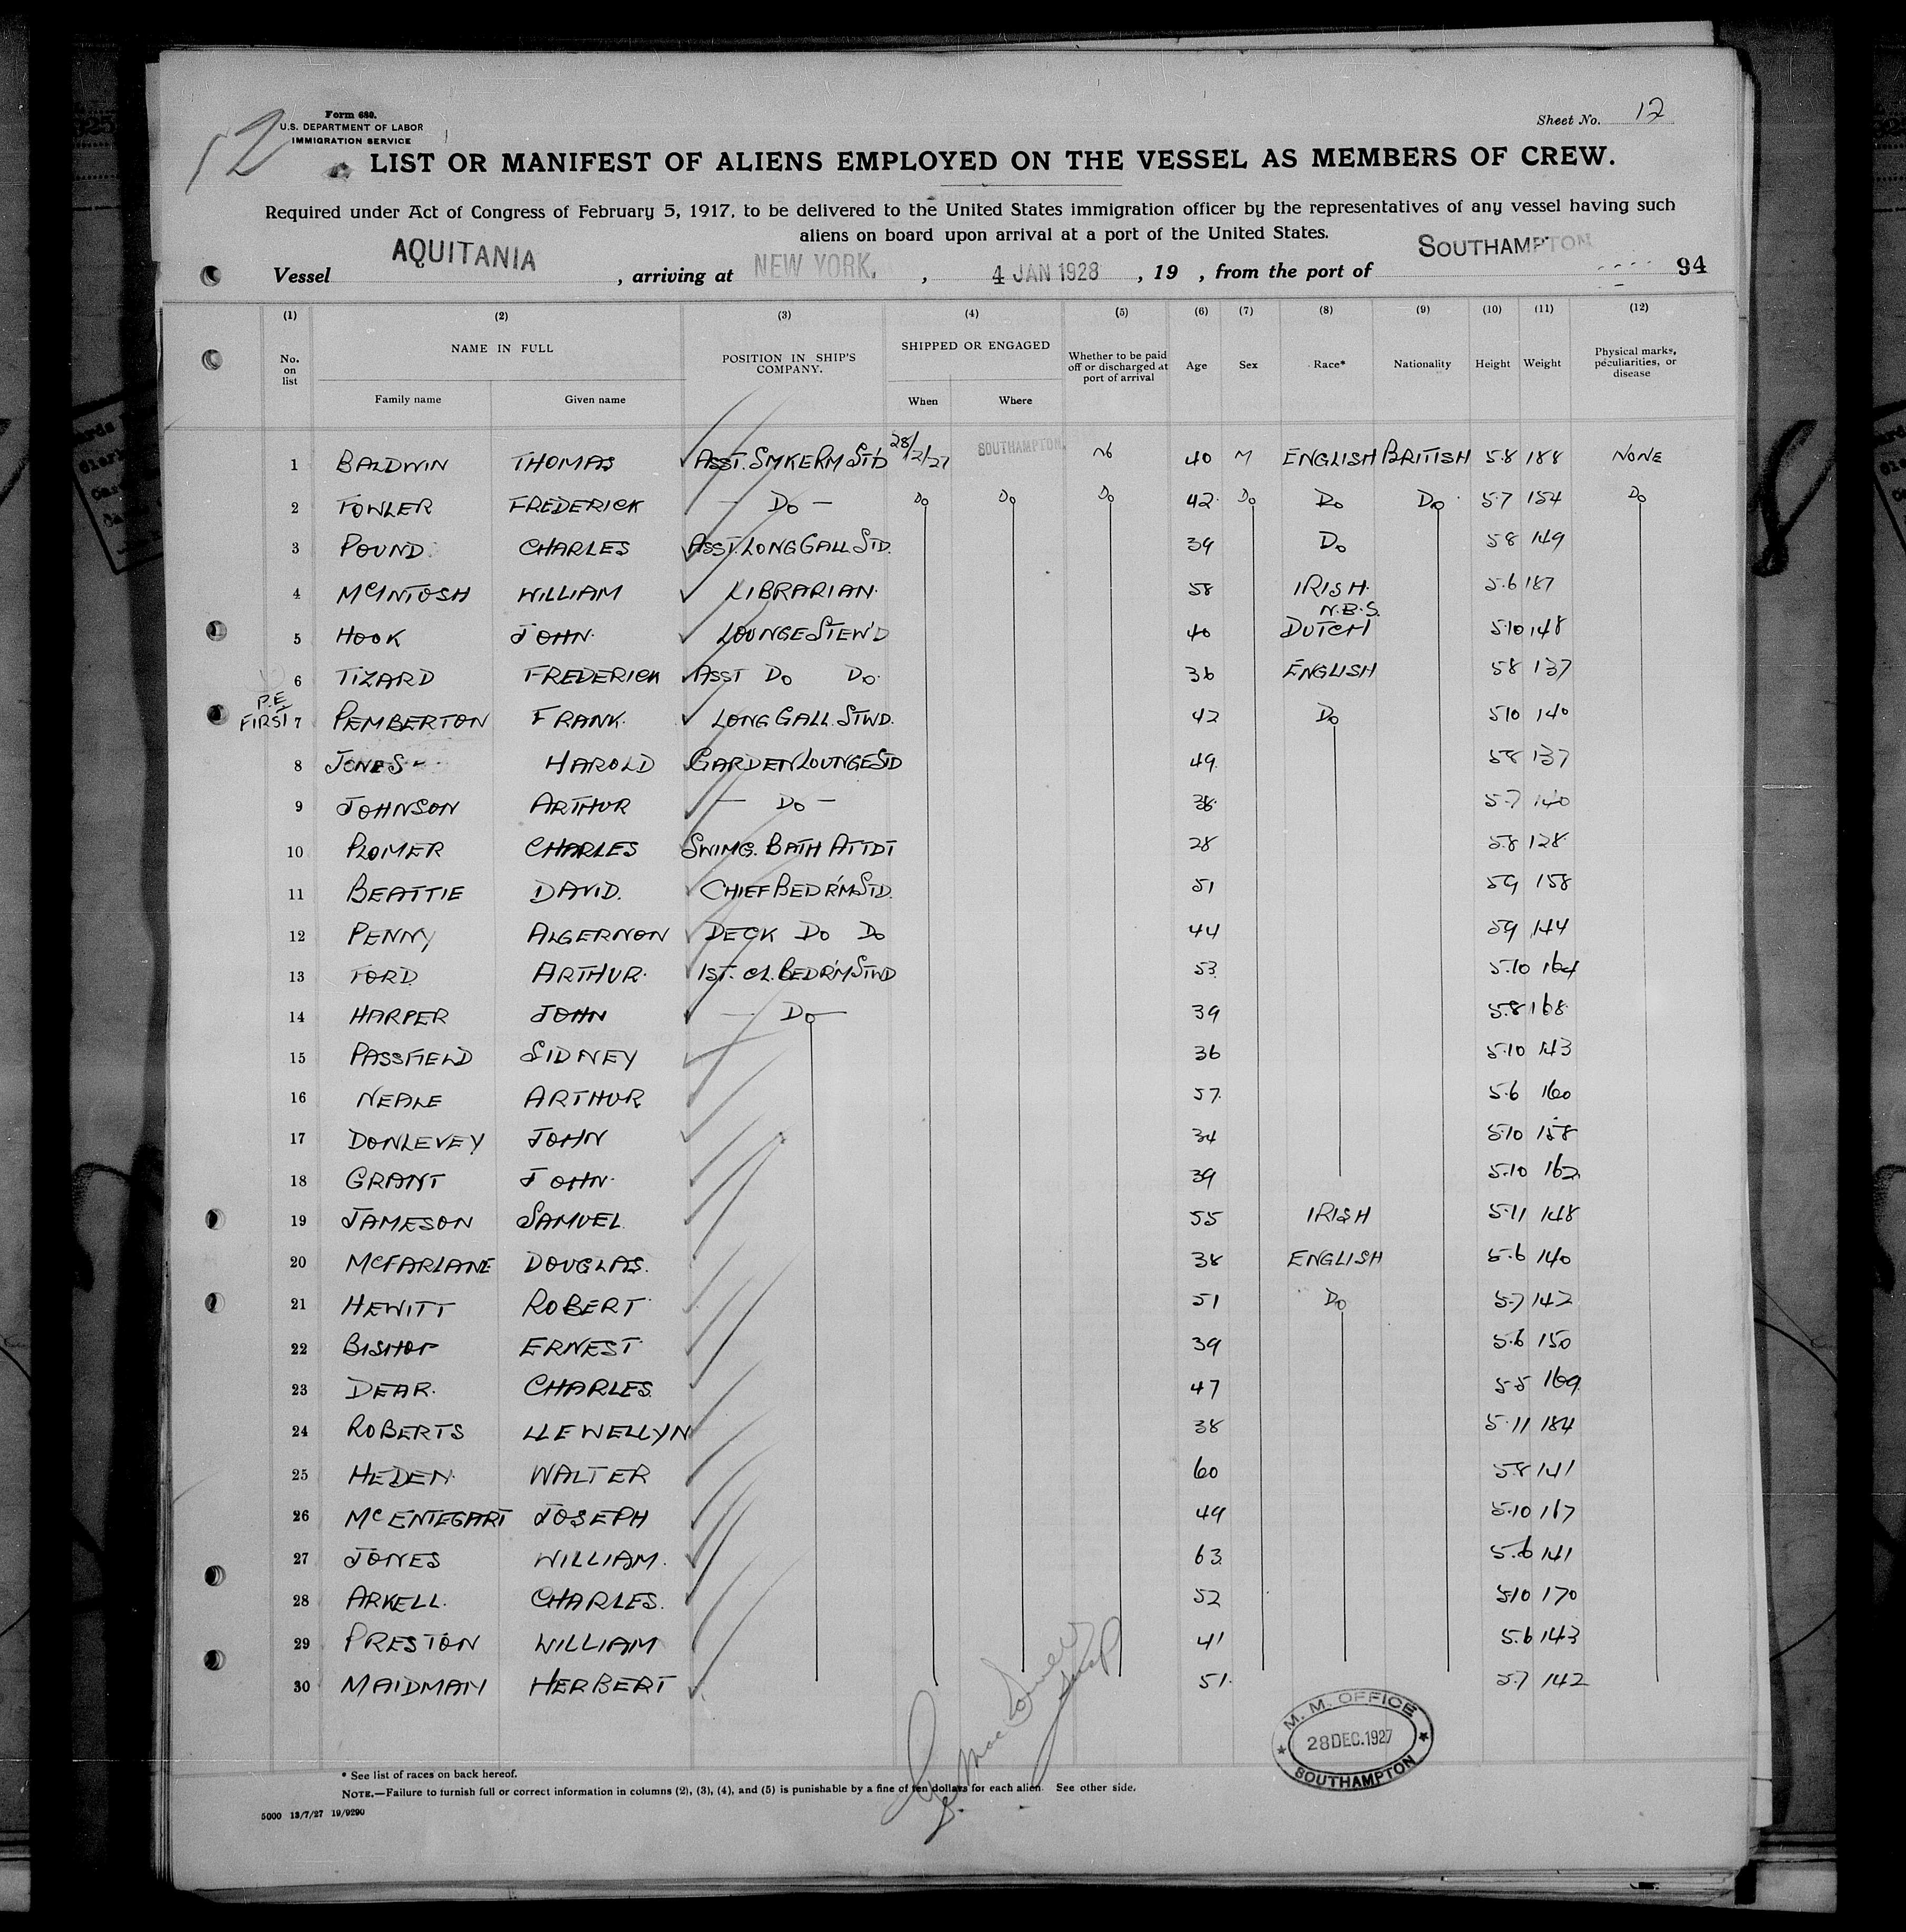 12
Form 680.
U.S. DEPARTMENT OF LABOR
IMMIGRATION SERVICE
Sheet No. 12
LIST OR MANIFEST OF ALIENS EMPLOYED ON THE VESSEL AS MEMBERS OF CREW.
Required under Act of Congress of February 5, 1917, to be delivered to the United States immigration officer by the representatives of any vessel having such
aliens on board upon arrival at a port of the United States.
Vessel AQUITANIA , arriving at NEW YORK. , 4 JAN 1928 , 19 , from the port of SOUTHAMPTON 94
(1) (2) (3) (4) (5) (6) (7) (8) (9) (10) (11) (12)
No. on list NAME IN FULL POSITION IN SHIP'S COMPANY. SHIPPED OR ENGAGED Whether to be paid off or discharged at port of arrival Age Sex Race* Nationality Height Weight Physical marks, peculiarities, or disease
Family name Given name When Where
1 BALDWIN THOMAS ASST. SMKE RM ST'D 28/12/27 SOUTHAMPTON. No 40 M ENGLISH BRITISH 5.8 188 NONE
2 FOWLER FREDERICK - Do - Do Do Do 42 Do Do Do 5.7 154 Do
3 POUND CHARLES ASST. LONG GALL STD. 39 Do 5 8 149
4 McINTOSH WILLIAM LIBRARIAN. 58 IRISH. 5.6 187
N.B.S.
5 HOOK JOHN. LOUNGE STEW'D 40 DUTCH 5.10 148
6 TIZARD FREDERICK ASST Do Do. 36 ENGLISH 5 8 137
P.E.
FIRST 7 PEMBERTON FRANK. LONG GALL. STWD. 42 Do 5.10 140
8 JONES HAROLD GARDEN LOUNGE STD 49. 5 8 137
9 JOHNSON ARTHUR - Do - 38. 5.7 140
10 PLOMER CHARLES SWIMG. BATH ATTDT 28 5.8 128
11 BEATTIE DAVID. CHIEF BED R'M STD. 51 5 9 158
12 PENNY ALGERNON DECK Do Do 44 5 9 144
13 FORD ARTHUR. 1ST. CL. BED R'M STWD 53. 5.10 164
14 HARPER JOHN - Do - 39 5.8 168
15 PASSFIELD SIDNEY 36 5.10 143
16 NEALE ARTHUR 57. 5.6 160
17 DONLEVEY JOHN 34 5.10 158
18 GRANT JOHN. 39 5.10 162
19 JAMESON SAMUEL. 55 IRISH 5.11 148
20 McFARLANE DOUGLAS. 38 ENGLISH 5.6 140
21 HEWITT ROBERT 51 Do 5.7 142
22 BISHOP ERNEST. 39 5.6 150
23 DEAR. CHARLES. 47 5.5 169
24 ROBERTS LLEWELLYN 38 5.11 184
25 HEDEN. WALTER 60 5.8 141
26 McENTEGART JOSEPH 49 5.10 167
27 JONES WILLIAM. 63 5.6 141
28 ARKELL. CHARLES. 52 5.10 170
29 PRESTON WILLIAM 41 5.6 143
30 MAIDMAN HERBERT 51. 5.7 142
M. M. OFFICE
28 DEC. 1927
SOUTHAMPTON
* See list of races on back hereof.
NOTE.—Failure to furnish full or correct information in columns (2), (3), (4), and (5) is punishable by a fine of ten dollars for each alien. See other side.
5000 13/7/27 19/9290